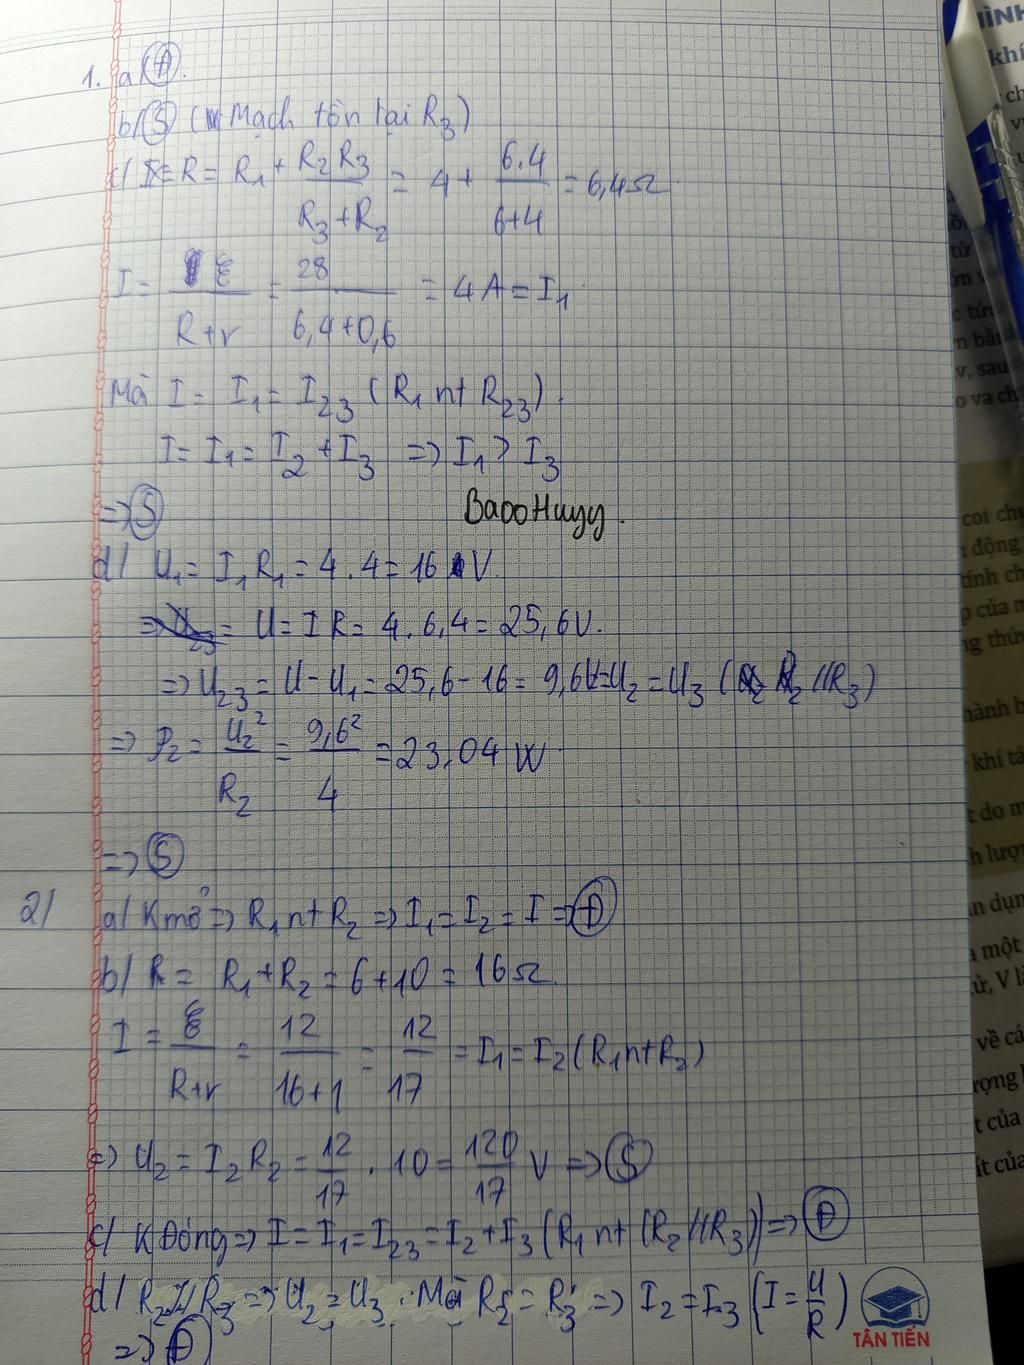 1. a) Đ.
b) S (Mạch tồn tại R3)
c) R = R1 + R2R3 / (R3 + R2) = 4 + 6.4 / (6+4) = 6,4Ω.
I = ξ / (R+r) = 28 / (6,4+0,6) = 4A = I1.
Mà I = I1 = I23 (R1 nt R23).
I = I1 = I2 + I3 => I1 > I3
=> S
BaooHuyy.
d) U1 = I1R1 = 4.4 = 16 V.
= U = IR = 4.6,4 = 25,6V.
=> U23 = U - U1 = 25,6 - 16 = 9,6V = U2 = U3 (R2 // R3)
=> P2 = U2² / R2 = 9,6² / 4 = 23,04 W
=> S
2) a) K mở => R1 nt R2 => I1 = I2 = I => Đ
b) R = R1 + R2 = 6 + 10 = 16Ω.
I = ξ / (R+r) = 12 / (16+1) = 12/17 = I1 = I2 (R1 nt R2)
=> U2 = I2R2 = 12/17 . 10 = 120/17 V => S
c) K Đóng => I = I1 = I23 = I2 + I3 (R1 nt (R2 // R3)) => Đ
d) R2 // R3 => U2 = U3. Mà R2 = R3 => I2 = I3 (I = U/R)
=> Đ
TÂN TIẾN